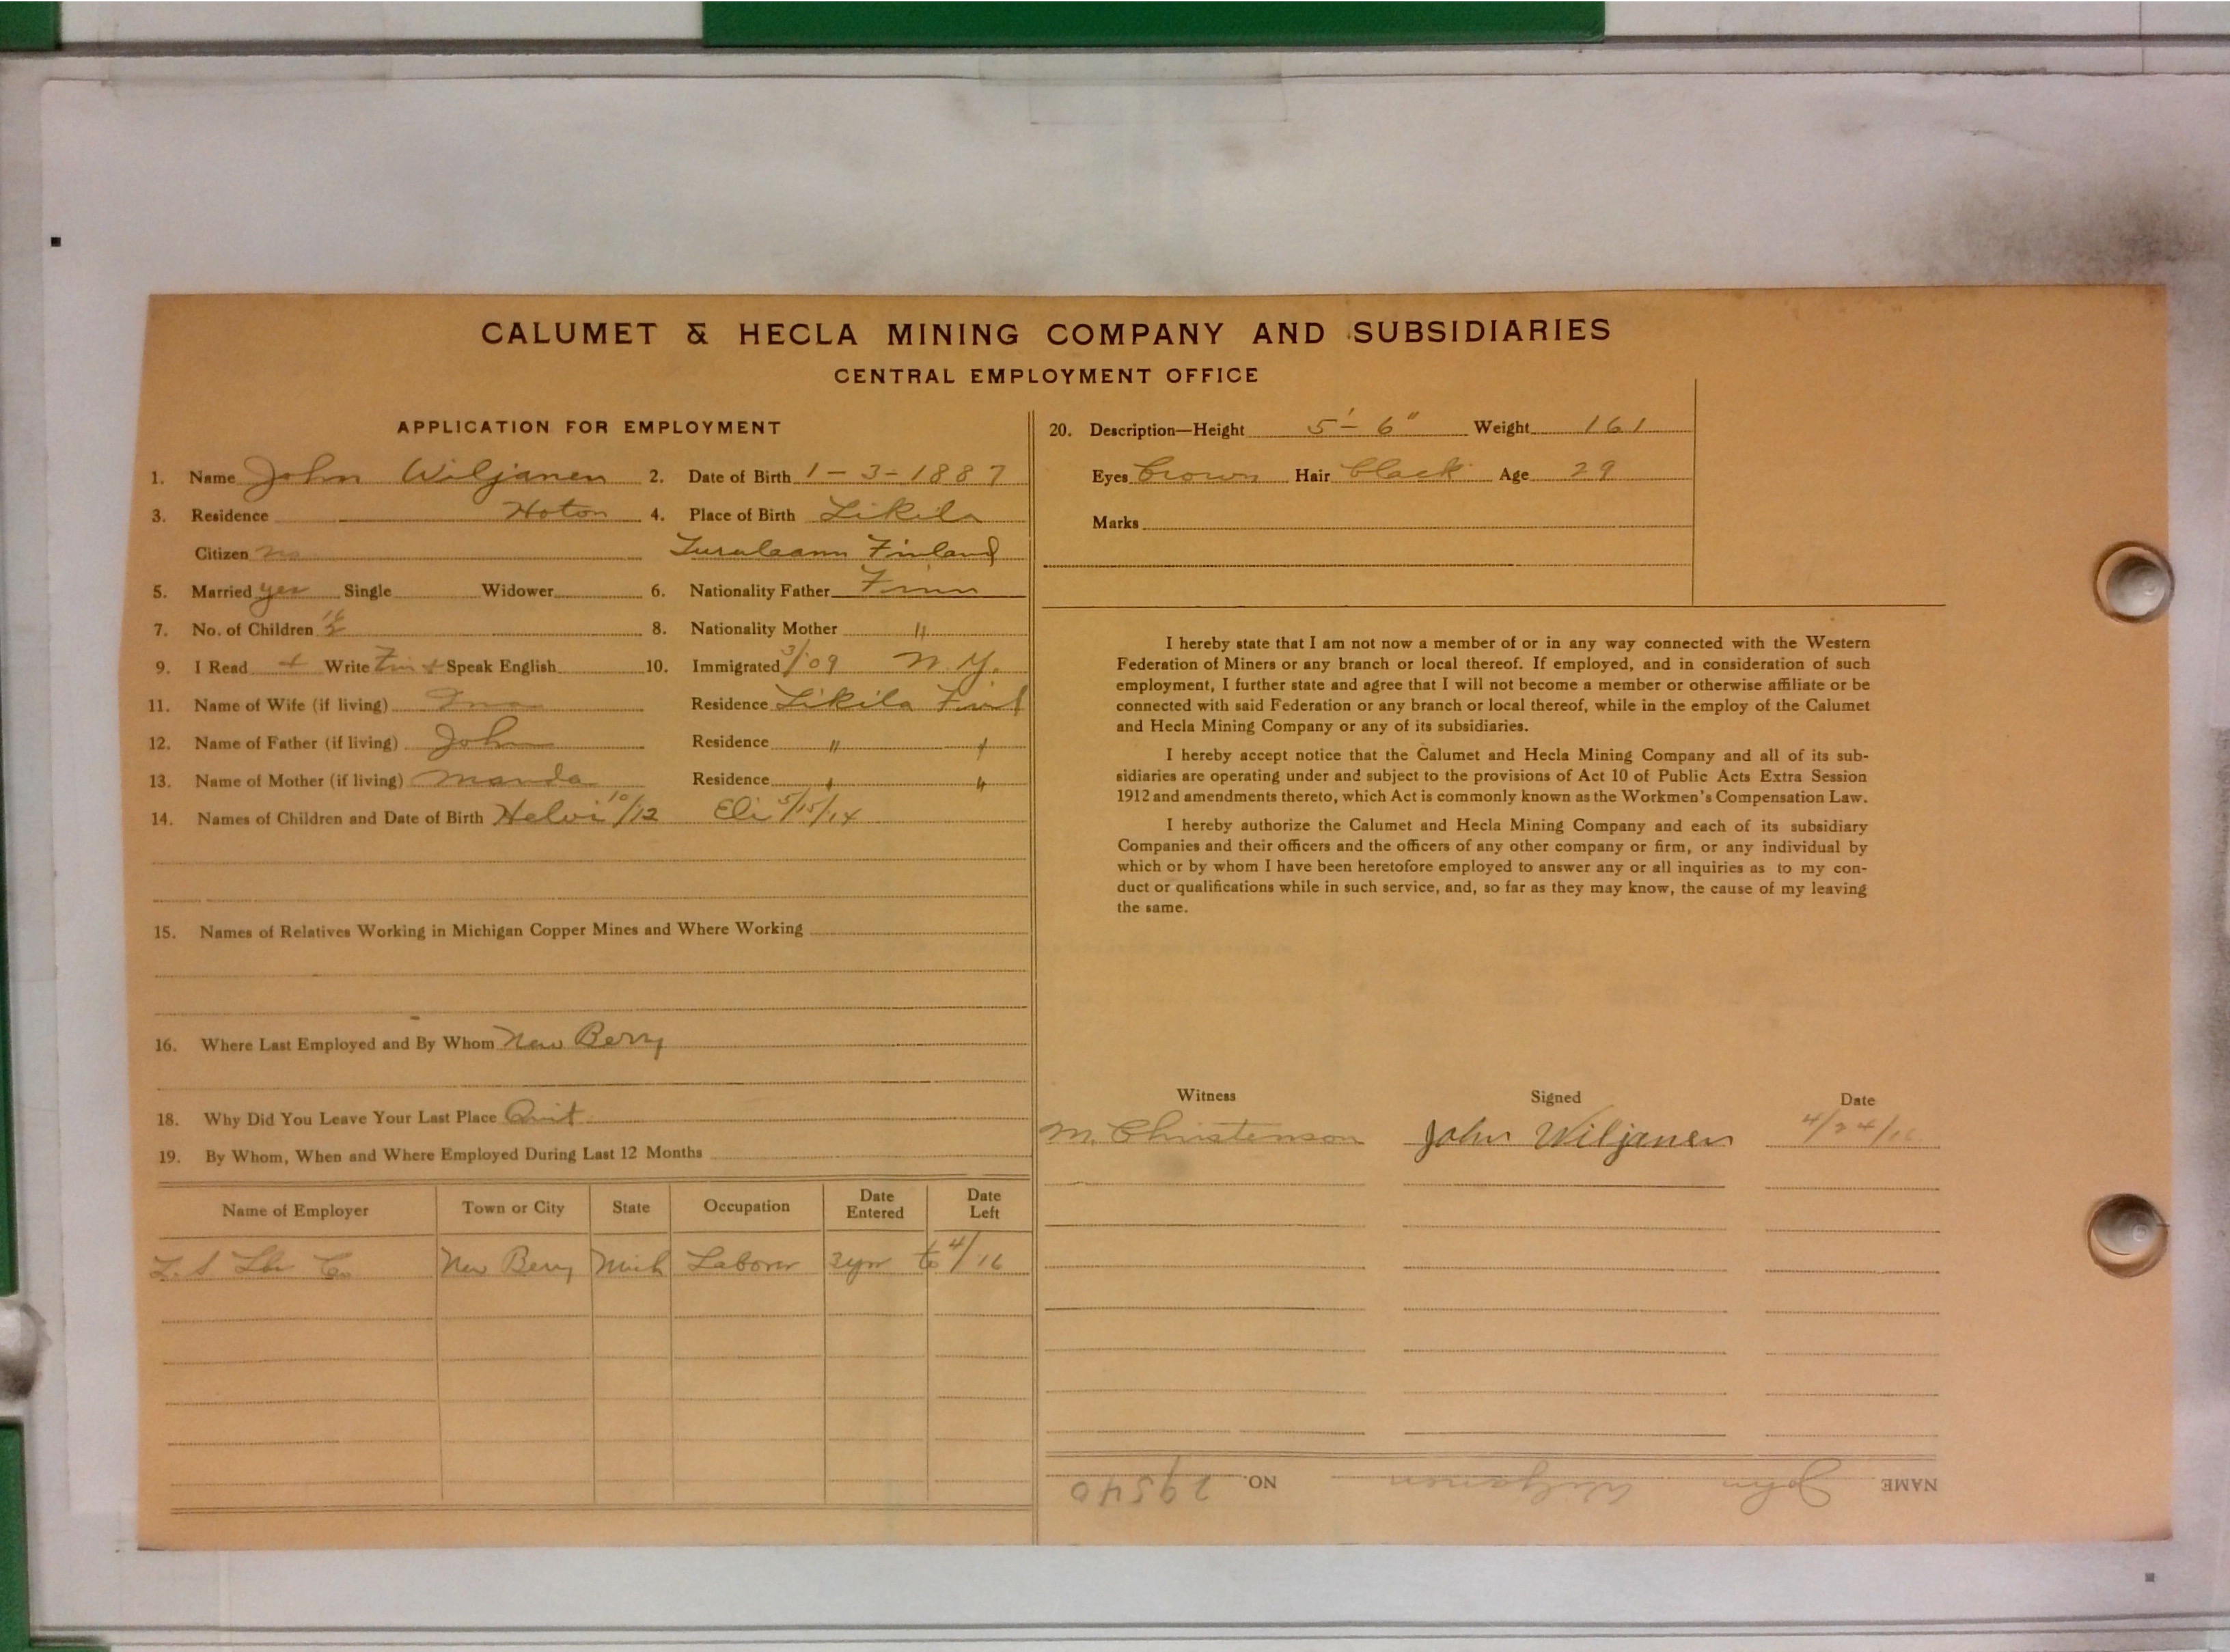 CALUMET & HECLA MINING COMPANY AND SUBSIDIARIES
CENTRAL EMPLOYMENT OFFICE
APPLICATION FOR EMPLOYMENT
1. Name John Wiljanen 2. Date of Birth 1-3-1887
3. Residence Hoton 4. Place of Birth Likila
Citizen no Finland
5. Married yes Single Widower 6. Nationality Father Finn
7. No. of Children 2 8. Nationality Mother "
9. I Read + Write Fin + Speak English 10. Immigrated 3/'09 N.Y.
11. Name of Wife (if living) Residence Likila Finl
12. Name of Father (if living) John Residence " "
13. Name of Mother (if living) Manda Residence " "
14. Names of Children and Date of Birth Helvi 10/12 Eli 5/15/14
15. Names of Relatives Working in Michigan Copper Mines and Where Working
16. Where Last Employed and By Whom New Berry
18. Why Did You Leave Your Last Place Quit
19. By Whom, When and Where Employed During Last 12 Months
Name of Employer Town or City State Occupation Date Entered Date Left
L. S. Lbr Co. New Berry Mich Laborer 3yr to 4/16
20. Description—Height 5'-6" Weight 161
Eyes brown Hair black Age 29
Marks
I hereby state that I am not now a member of or in any way connected with the Western
Federation of Miners or any branch or local thereof. If employed, and in consideration of such
employment, I further state and agree that I will not become a member or otherwise affiliate or be
connected with said Federation or any branch or local thereof, while in the employ of the Calumet
and Hecla Mining Company or any of its subsidiaries.
I hereby accept notice that the Calumet and Hecla Mining Company and all of its sub-
sidiaries are operating under and subject to the provisions of Act 10 of Public Acts Extra Session
1912 and amendments thereto, which Act is commonly known as the Workmen's Compensation Law.
I hereby authorize the Calumet and Hecla Mining Company and each of its subsidiary
Companies and their officers and the officers of any other company or firm, or any individual by
which or by whom I have been heretofore employed to answer any or all inquiries as to my con-
duct or qualifications while in such service, and, so far as they may know, the cause of my leaving
the same.
Witness Signed Date
M. Christenson John Wiljanen 4/24/16
NAME John Wiljanen NO. 29540